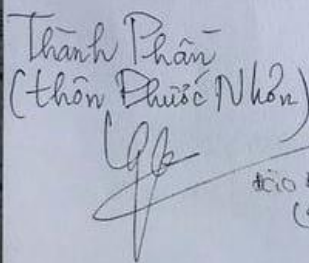 Thành Phần
(thôn Phước Nhơn)